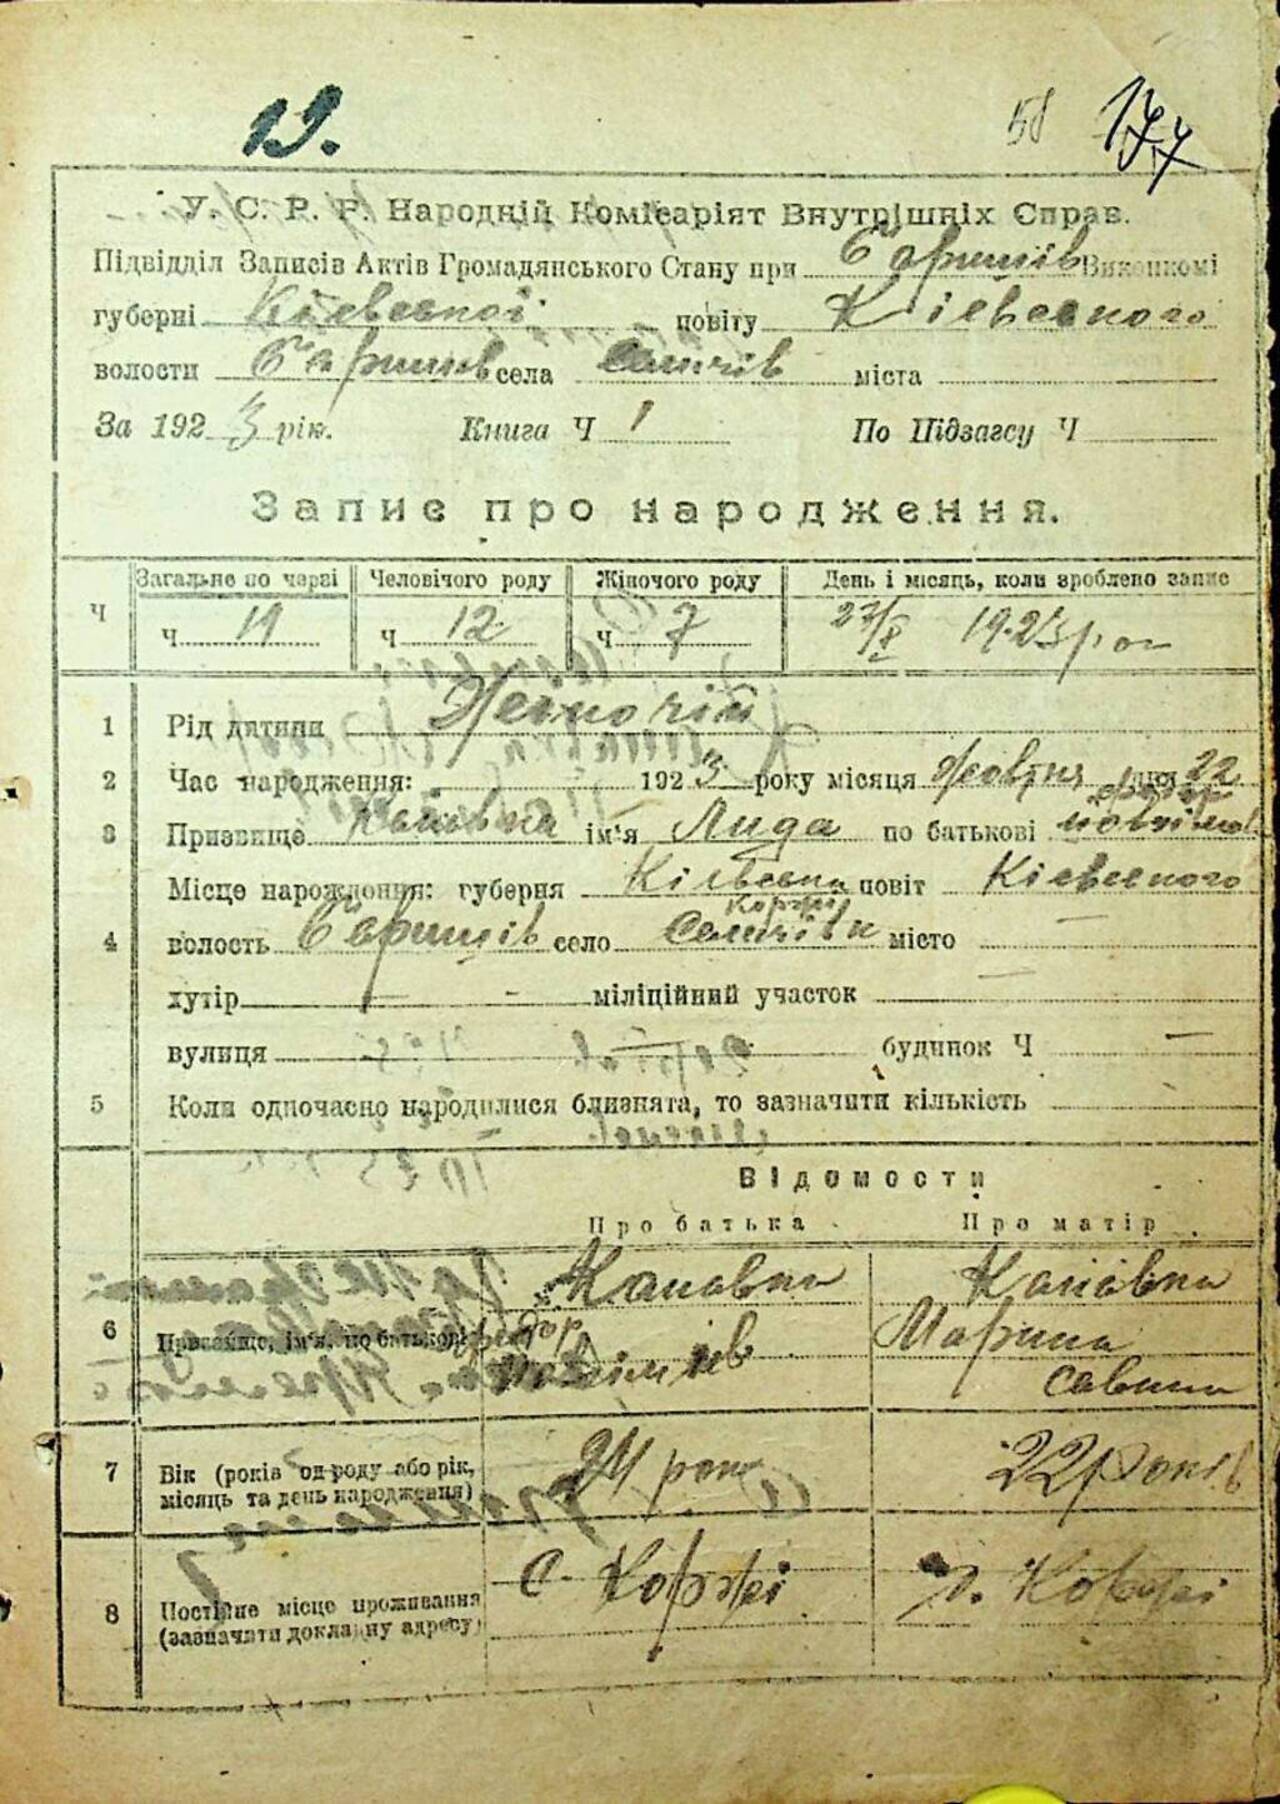 19.
58 177
У. С. Р. Р. Народній Комісаріят Внутрішніх Справ.
Підвідділ Записів Актів Громадянського Стану при Баришів Виконкомі
губерні Кіевскої повіту Кіевського
волости Баришів села Селичів міста
За 1923 рік. Книга Ч 1 По Підзагсу Ч
Запис про народження.
Ч Загальне по черзі Человічого роду Жіночого роду День і місяць, коли зроблено запис
ч 19 ч 12 ч 7 27/X 1923 рок
1 Рід дитини Жіночій
2 Час народження: 1923 року місяця Жовтня дня 22
3 Призвище Канівка ім'я Лида по батькові
Місце народження: губерня Кіевська повіт Кіевского
Коржі
4 волость Баришів село Селичівка місто —
хутір — - міліційний участок —
вулиця — будинок Ч —
5 Коли одночасно народилися близнята, то зазначити кількість
Відомости
Про батька Про матір
6 Призвище, ім'я, по батькові
Канавка Канавка
Марина
Савина
7 Вік (років од роду або рік, місяць та день народження) 24 рок 22 років
8 Постійне місце проживання (зазначити докладну адресу) с. Коржі с. Коржі